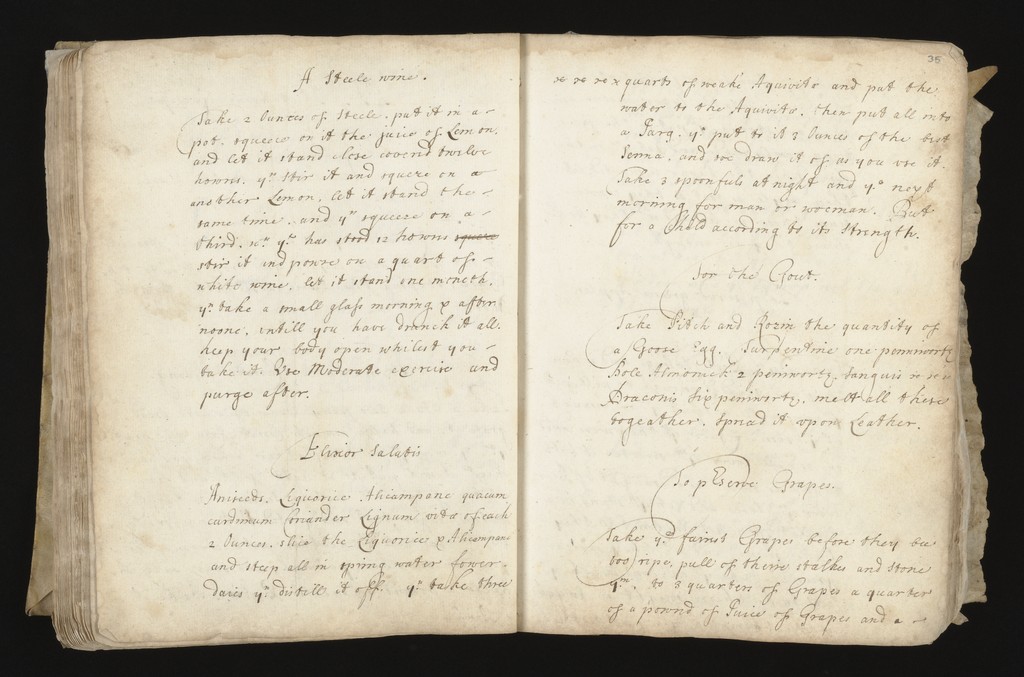 A Steele wine.
Take 2 Ounces of Steele. put it in a
pot. squeeze on it the juice of Lemon.
and let it stand close coverd twelve
howrs. yn stir it and squeze on a
another Lemon. let it stand the
same time. and yn squeeze on a
third. wn yt has stood 12 howrs squeeze
stir it and powre on a quart of
white wine. let it stand one moneth.
yn take a small glass morning & after
noone. untill you have drunck it all.
keep your body open whilest you
take it. Use Moderate exercise and
purge after.
Elixior Salutis
Aniseeds. Liquorice Alicampane guacum
cardimum Coriander Lignum vitæ of each
2 Ounces. slice the Liquorice & Alicampane
and steep all in spring water fower
daies yn distill it off. yn take three
35
quarts of weake Aquivite and put the
water to the Aquivite. then put all into
a Jarg. yn put to it 3 Ounces of the best
Senna. and soe draw it of as you use it.
Take 3 spoonfuls at night and ye next
morning for man or woeman. But
for a Child according to its Strength.
For the Gout.
Take Pitch and Rozin the quantity of
a Goose Egg. Turpentine one penniwortz
Bole Almonick 2 peniwortz. Sanguis
Draconis six peniwortz. melt all these
togeather. spread it upon Leather.
To pEserve Grapes.
Take ye fairest Grapes before they bee
too ripe, pull of there stalkes and stone
ym. to 3 quarters of Grapes a quarter
of a pownd of Juice of Grapes and a